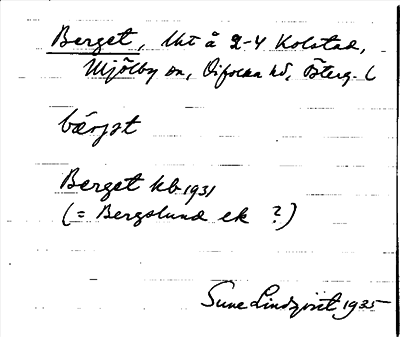 Berget, lht å 2-4 Kolstad,
Mjölby sn, Vifolka hd, Österg. (
bärjət
Berget kb 1931
(= Bergslund ek ?)
Sune Lindqvist 1935